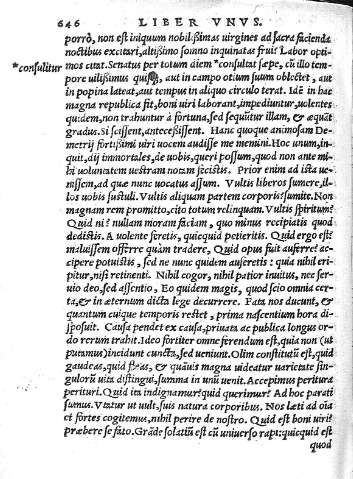 646 LIBER VNVS.
porrò, non est iniquum nobilißimas uirgines ad sacra facienda
noctibus excitari, altißimo somno inquinatas frui? Labor opti-
mos citat. Senatus per totum diem *consultat sæpe, cũ illo tem-
*consulitur
pore uilißimus quisq, aut in campo otium suum oblectet, aut
in popina lateat, aut tempus in aliquo circulo terat. Idẽ in hac
magna republica fit, boni uiri laborant, impediuntur, uolentes
quidem, non trahuntur à fortuna, sed sequũtur illam, & æquãt
gradus. Si scissent, anteceßissent. Hanc quoque animosam De-
metrij fortißimi uiri uocem audisse me memini. Hoc unum, in-
quit, dij immortales, de uobis, queri possum, quod non ante mi-
hi uoluntatem uestram notam fecistis. Prior enim ad ista ue-
nissem, ad quæ nunc uocatus assum. Vultis liberos sumere, il-
los uobis sustuli. Vultis aliquam partem corporis? sumite. Non
magnam rem promitto, cito totum relinquam. Vultis spiritum?
Quid ni? nullam moram faciam, quo minus recipiatis quod
dedistis. A uolente feretis, quicquid petieritis. Quid ergo est?
maluissem offerre quàm tradere. Quid opus fuit auferre? ac-
cipere potuistis, sed ne nunc quidem auferetis: quia nihil eri-
pitur, nisi retinenti. Nihil cogor, nihil patior inuitus, nec ser-
uio deo, sed assentio, Eo quidem magis, quod scio omnia cer-
ta, & in æternum dicta lege decurrere. Fata nos ducunt, &
quantum cuique temporis restet, prima nascentium hora di-
sposuit. Causa pendet ex causa, priuata ac publica longus or-
do rerum trahit. Ideo fortiter omne ferendum est, quia non (ut
putamus) incidunt cuncta, sed ueniunt. Olim constitutũ est, quid
gaudeas, quid fleas, & quãuis magna uideatur uarietate sin-
gulorũ uita distingui, summa in unũ uenit. Accepimus peritura
perituri. Quid ita indignamur? quid querimur? Ad hoc parati
sumus. Vtatur ut uult, suis natura corporibus. Nos læti ad oĩa
et fortes cogitemus, nihil perire de nostro. Quid est boni uiri?
præbere se fato. Grãde solatiũ est cũ uniuerso rapi: quicquid est
quod